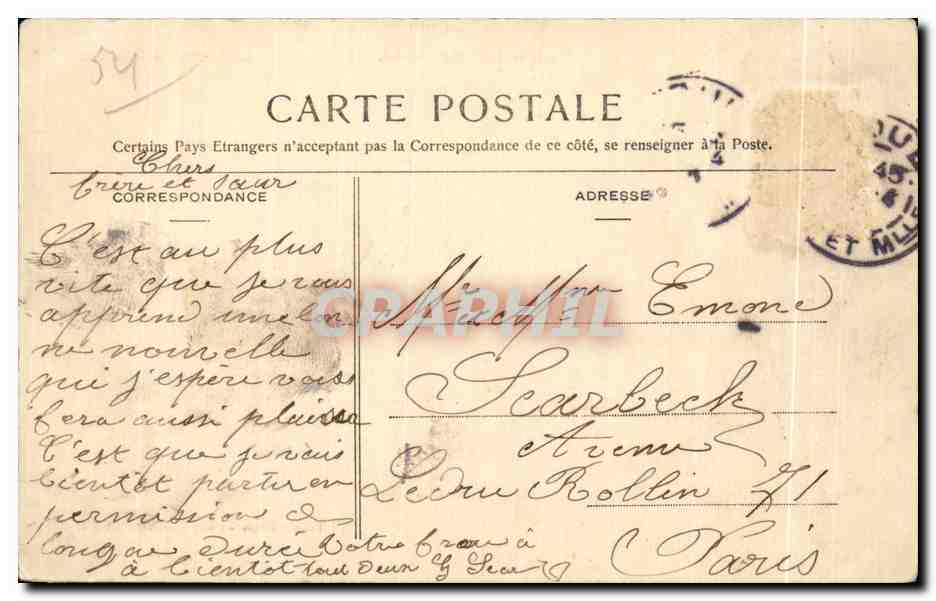 54
CARTE POSTALE
Certains Pays Etrangers n'acceptant pas la Correspondance de ce côté, se renseigner à la Poste.
Chers
frère et Sœur
CORRESPONDANCE
C'est au plus
vite que je vous
apprend une bon
ne nouvelle
qui j'espère vous
fera aussi plaisir
C'est que je vais
bientôt partir en
permission de
longue durée Votre frère
à bientôt tout deux
ADRESSE
Mr et Mme Emone
Scarbeck
Avenue
Ledru Rollin 71
Paris
ET MLLE
CPAPHIL